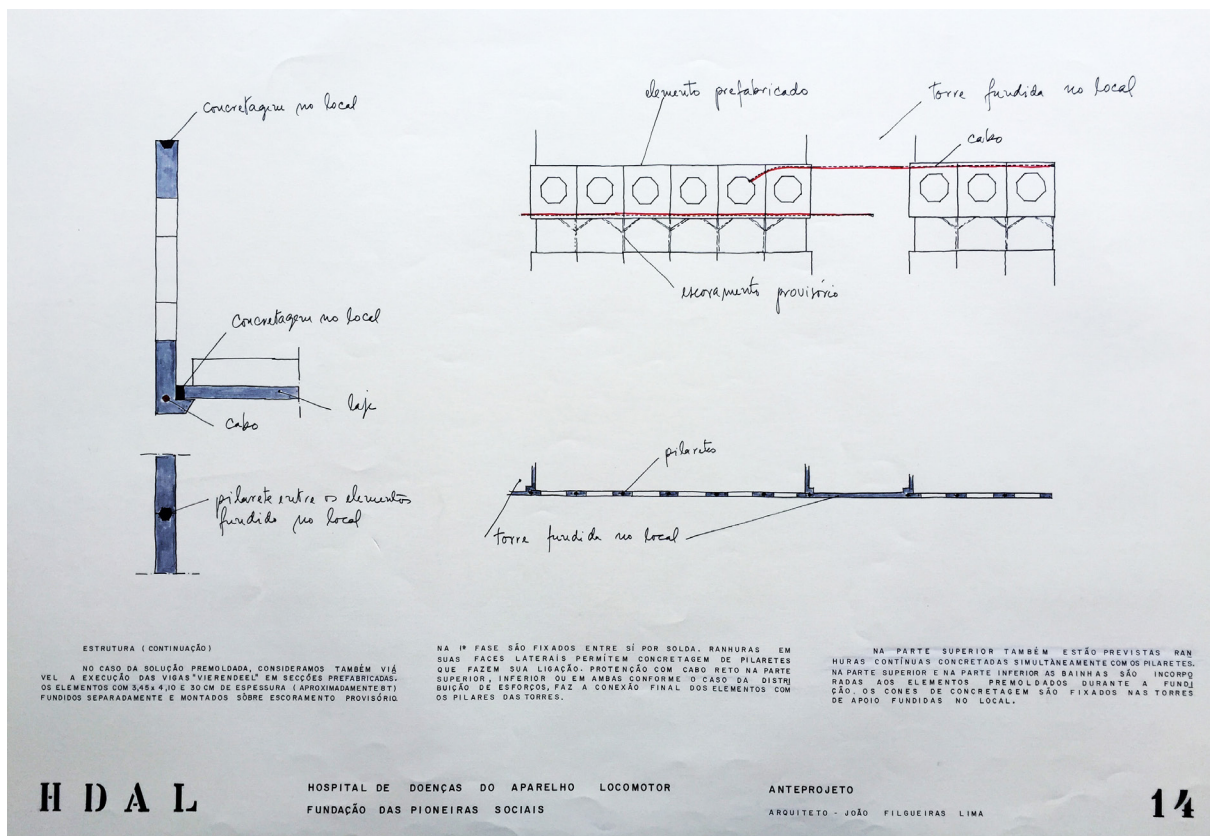 concretagem no local
elemento prefabricado
torre fundida no local
cabo
escoramento provisório
concretagem no local
laje
cabo
pilaretes
pilarete entre os elementos
fundido no local
torre fundida no local
ESTRUTURA (CONTINUAÇÃO)
NO CASO DA SOLUÇÃO PREMOLDADA, CONSIDERAMOS TAMBÉM VIÁ
VEL A EXECUÇÃO DAS VIGAS "VIERENDEEL" EM SECÇÕES PREFABRICADAS.
OS ELEMENTOS COM 3,45 x 4,10 E 30 CM DE ESPESSURA (APROXIMADAMENTE 8T)
FUNDIDOS SEPARADAMENTE E MONTADOS SÔBRE ESCORAMENTO PROVISÓRIO
NA 1ª FASE SÃO FIXADOS ENTRE SÍ POR SOLDA. RANHURAS EM
SUAS FACES LATERAIS PERMÍTEM CONCRETAGEM DE PILARETES
QUE FAZEM SUA LIGAÇÃO. PROTENÇÃO COM CABO RETO NA PARTE
SUPERIOR, INFERIOR OU EM AMBAS CONFORME O CASO DA DISTRI
BUIÇÃO DE ESFORÇOS, FAZ A CONEXÃO FINAL DOS ELEMENTOS COM
OS PILARES DAS TORRES.
NA PARTE SUPERIOR TAMBÉM ESTÃO PREVISTAS RAN
HURAS CONTÍNUAS CONCRETADAS SIMULTÂNEAMENTE COM OS PILARETES.
NA PARTE SUPERIOR E NA PARTE INFERIOR AS BAINHAS SÃO INCORPO
RADAS AOS ELEMENTOS PREMOLDADOS DURANTE A FUNDI
ÇÃO. OS CONES DE CONCRETAGEM SÃO FIXADOS NAS TORRES
DE APOIO FUNDIDAS NO LOCAL.
HDAL
HOSPITAL DE DOENÇAS DO APARELHO LOCOMOTOR
FUNDAÇÃO DAS PIONEIRAS SOCIAIS
ANTEPROJETO
ARQUITETO - JOÃO FILGUEIRAS LIMA
14